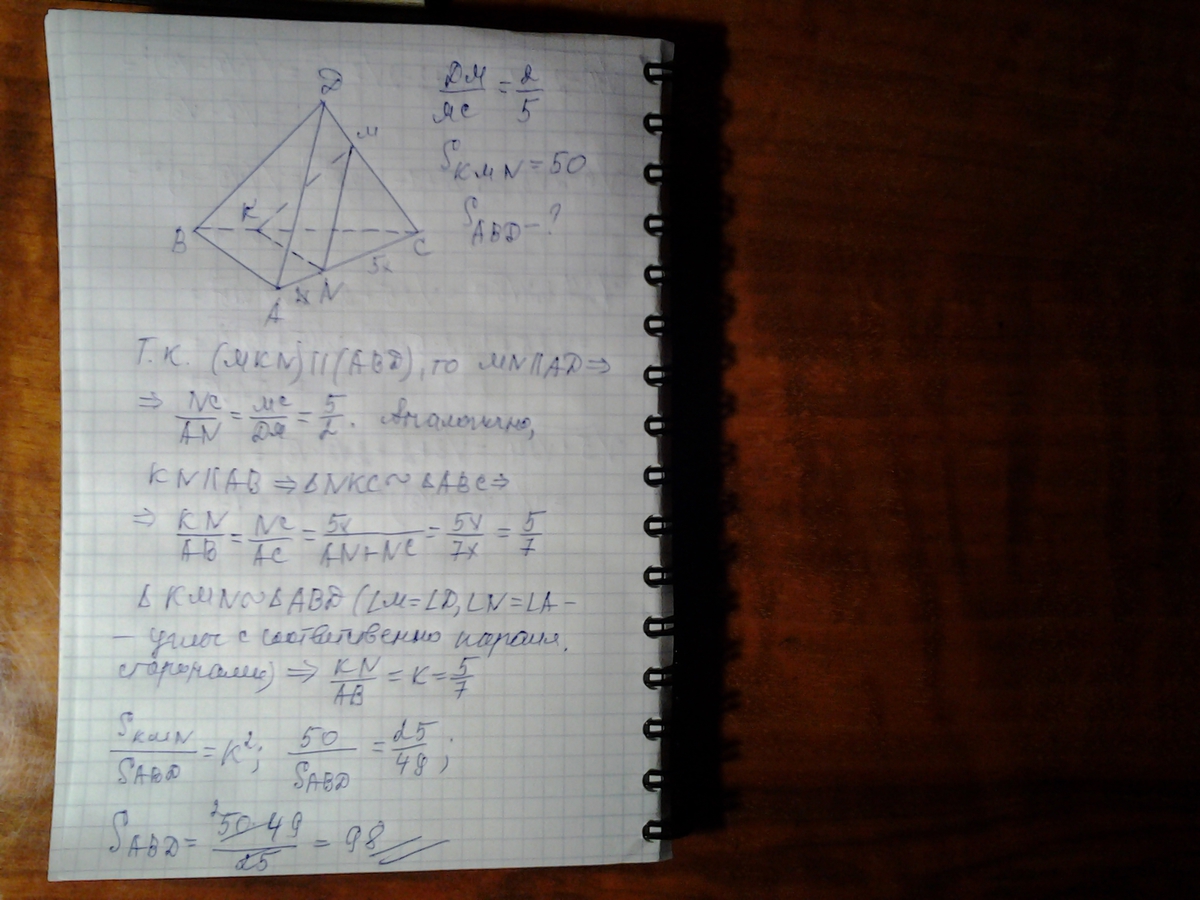 D
M
K
B
C
5x
A 2x N
DM/MC = 2/5
S_KMN = 50
S_ABD - ?
Т.К. (MKN) || (ABD), то MN || AD ⇒
⇒ NC/AN = MC/DM = 5/2. Аналогично,
KN || AB ⇒ Δ NKC ~ Δ ABC ⇒
⇒ KN/AB = NC/AC = 5x/(AN+NC) = 5x/7x = 5/7
Δ KMN ~ Δ ABD (∠M = ∠D, ∠N = ∠A -
- углы с соответственно паралл.
сторонами) ⇒ KN/AB = K = 5/7
S_KMN/S_ABD = K²; 50/S_ABD = 25/49;
S_ABD = ²50·49/25 = 98